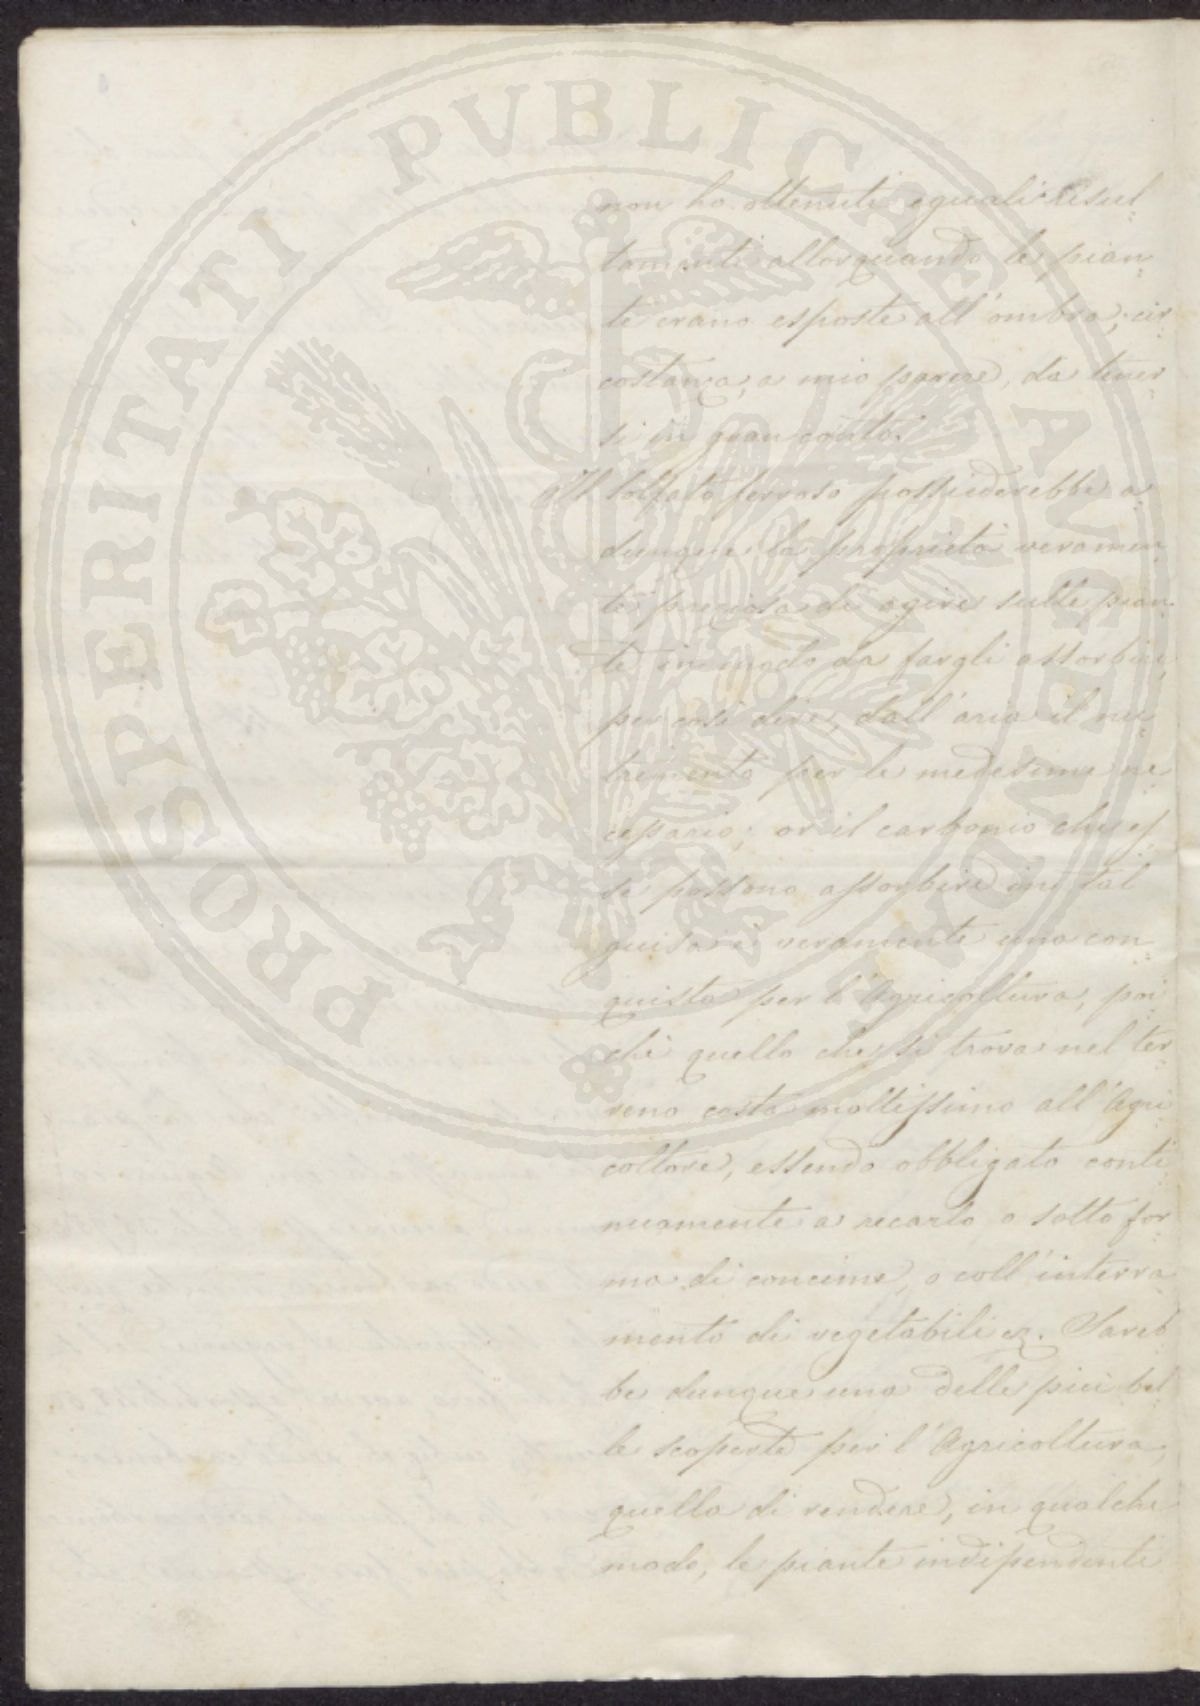 PROSPERITATI PUBLICAE AUGENDAE
non ho ottenuti eguali risul
tamenti allorquando le pian
te erano esposte all'ombra; cir
costanza, a mio parere, da tener
si in gran conto.
Il solfato ferroso possiederebbe a
dunque la proprietà veramen
te preziosa di agire sulle pian
te in modo da fargli assorbire
per così dire, dall'aria il nu
trimento per le medesime ne
cessario; or il carbonio che es
se possono assorbire in tal
guisa è veramente una con
quista per l'Agricoltura, poi
chè quello che si trova nel ter
reno costa moltissimo all'Agri
coltore, essendo obbligato conti
nuamente a recarlo o sotto for
ma di concime, o coll'interra
mento di vegetabili ez. Sareb
be dunque una delle più bel
le scoperte per l'Agricoltura,
quella di rendere, in qualche
modo, le piante indipendenti